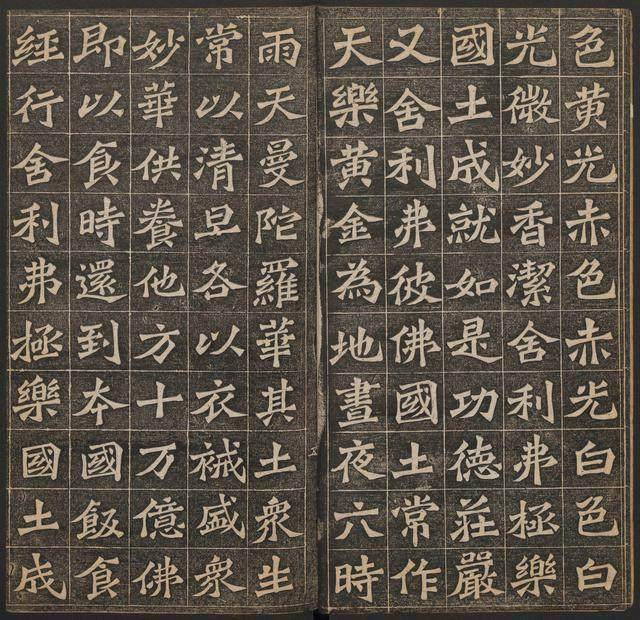 色黄光赤色赤光白色白
光微妙香潔舍利弗極樂
國土成就如是功德莊嚴
又舍利弗彼佛國土常作
天樂黄金為地晝夜六時
雨天曼陀羅華其土衆生
常以清旦各以衣祴盛衆
妙華供養他方十万億佛
即以食時還到本國飯食
經行舍利弗極樂國土成